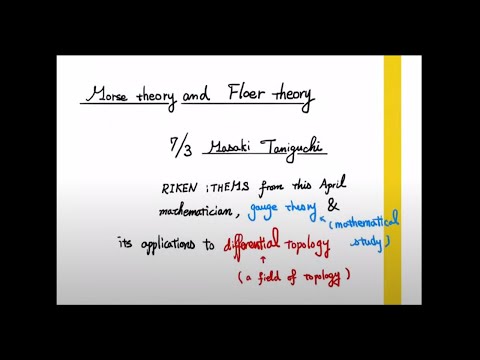 Morse theory and Floer theory
7/3 Masaki Taniguchi
RIKEN iTHEMS from this April
mathematician, gauge theory &
(mathematical study)
its applications to differential topology
(a field of topology)